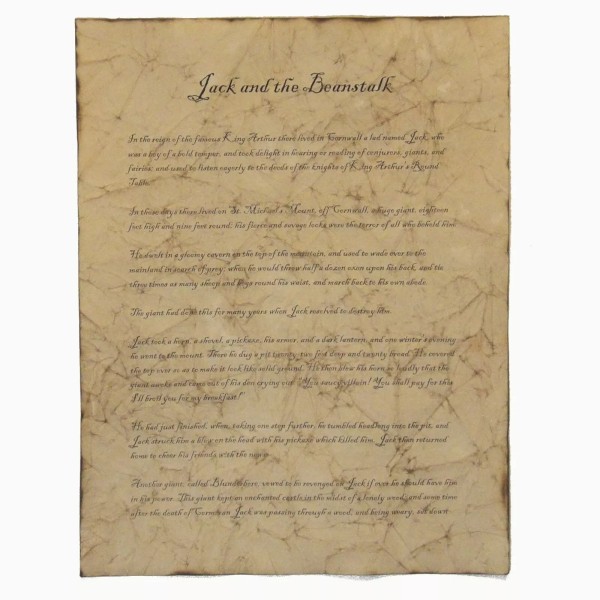 Jack and the Beanstalk
In the reign of the famous King Arthur there lived in Cornwall a lad named Jack, who
was a boy of a bold temper, and took delight in hearing or reading of conjurers, giants, and
fairies; and used to listen eagerly to the deeds of the knights of King Arthur's Round
Table.
In those days there lived on St. Michael's Mount, off Cornwall, a huge giant, eighteen
feet high and nine feet round; his fierce and savage looks were the terror of all who beheld him.
He dwelt in a gloomy cavern on the top of the mountain, and used to wade over to the
mainland in search of prey; when he would throw half a dozen oxen upon his back, and tie
three times as many sheep and hogs round his waist, and march back to his own abode.
The giant had done this for many years when Jack resolved to destroy him.
Jack took a horn, a shovel, a pickaxe, his armor, and a dark lantern, and one winter's evening
he went to the mount. There he dug a pit twenty-two feet deep and twenty broad. He covered
the top over so as to make it look like solid ground. He then blew his horn so loudly that the
giant awoke and came out of his den crying out: "You saucy villain! You shall pay for this
I'll broil you for my breakfast!"
He had just finished, when, taking one step further, he tumbled headlong into the pit, and
Jack struck him a blow on the head with his pickaxe which killed him. Jack then returned
home to cheer his friends with the news.
Another giant, called Blunderbore, vowed to be revenged on Jack if ever he should have him
in his power. This giant kept an enchanted castle in the midst of a lonely wood; and some time
after the death of Cormoran Jack was passing through a wood, and being weary, sat down